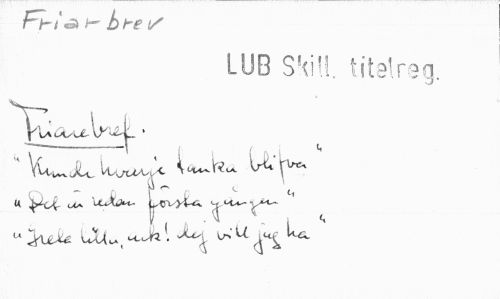 Friarbrev
LUB Skill. titelreg.
Friarebref.
"Kunde hvarje tanka blifva"
"Det är redan första gången"
"Greta lilla, ack! dej vill jag ha"